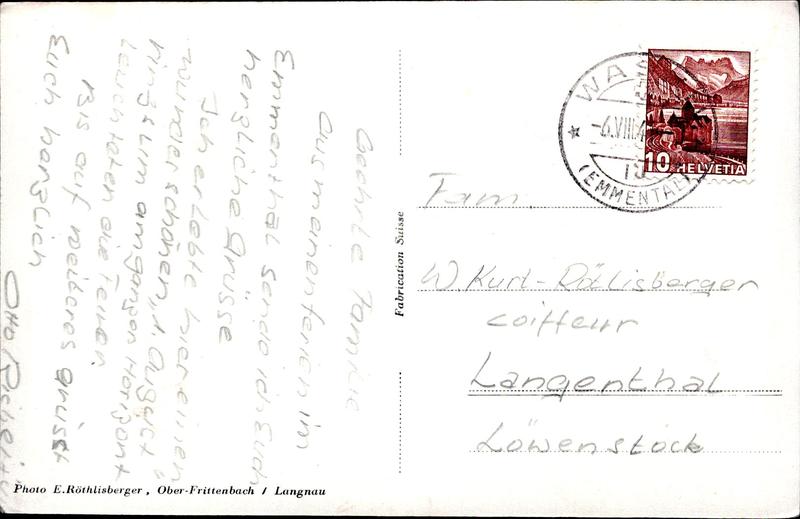 Geehrte Familie
Aus meinen Ferien im
Emmenthal sende ich Euch
herzliche Grüsse
Ich erlebte hier einen
wunderschönen 1. August
ringsum am ganzen Horizont
leuchteten die Feuer.
Bis auf weiteres grüsst
Euch herzlich
Otto
Photo E.Röthlisberger, Ober-Frittenbach / Langnau
Fabrication Suisse
WA
-6.VIII.4
(EMMENTAL)
10 HELVETIA
Fam.
W. Kurt-Rötlisberger
Coiffeur
Langenthal
Löwenstock